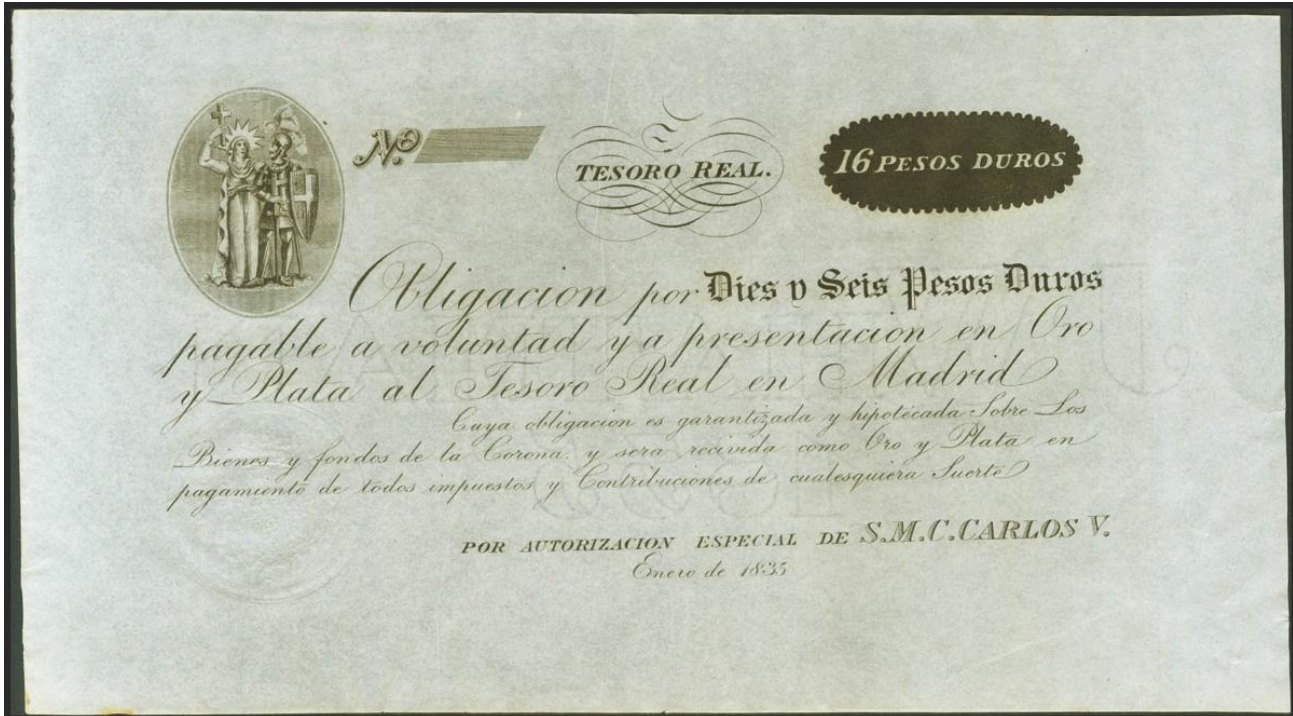 Nº
TESORO REAL.
16 PESOS DUROS
Obligacion por Dies y Seis Pesos Duros
pagable a voluntad y a presentacion en Oro
y Plata al Tesoro Real en Madrid
Cuya obligacion es garantizada y hipotécada Sobre Los
Bienes y fondos de la Corona. y sera recivida como Oro y Plata en
pagamiento de todos impuestos y Contribuciones de cualesquiera Suerte
POR AUTORIZACION ESPECIAL DE S.M.C.CARLOS V.
Enero de 1835